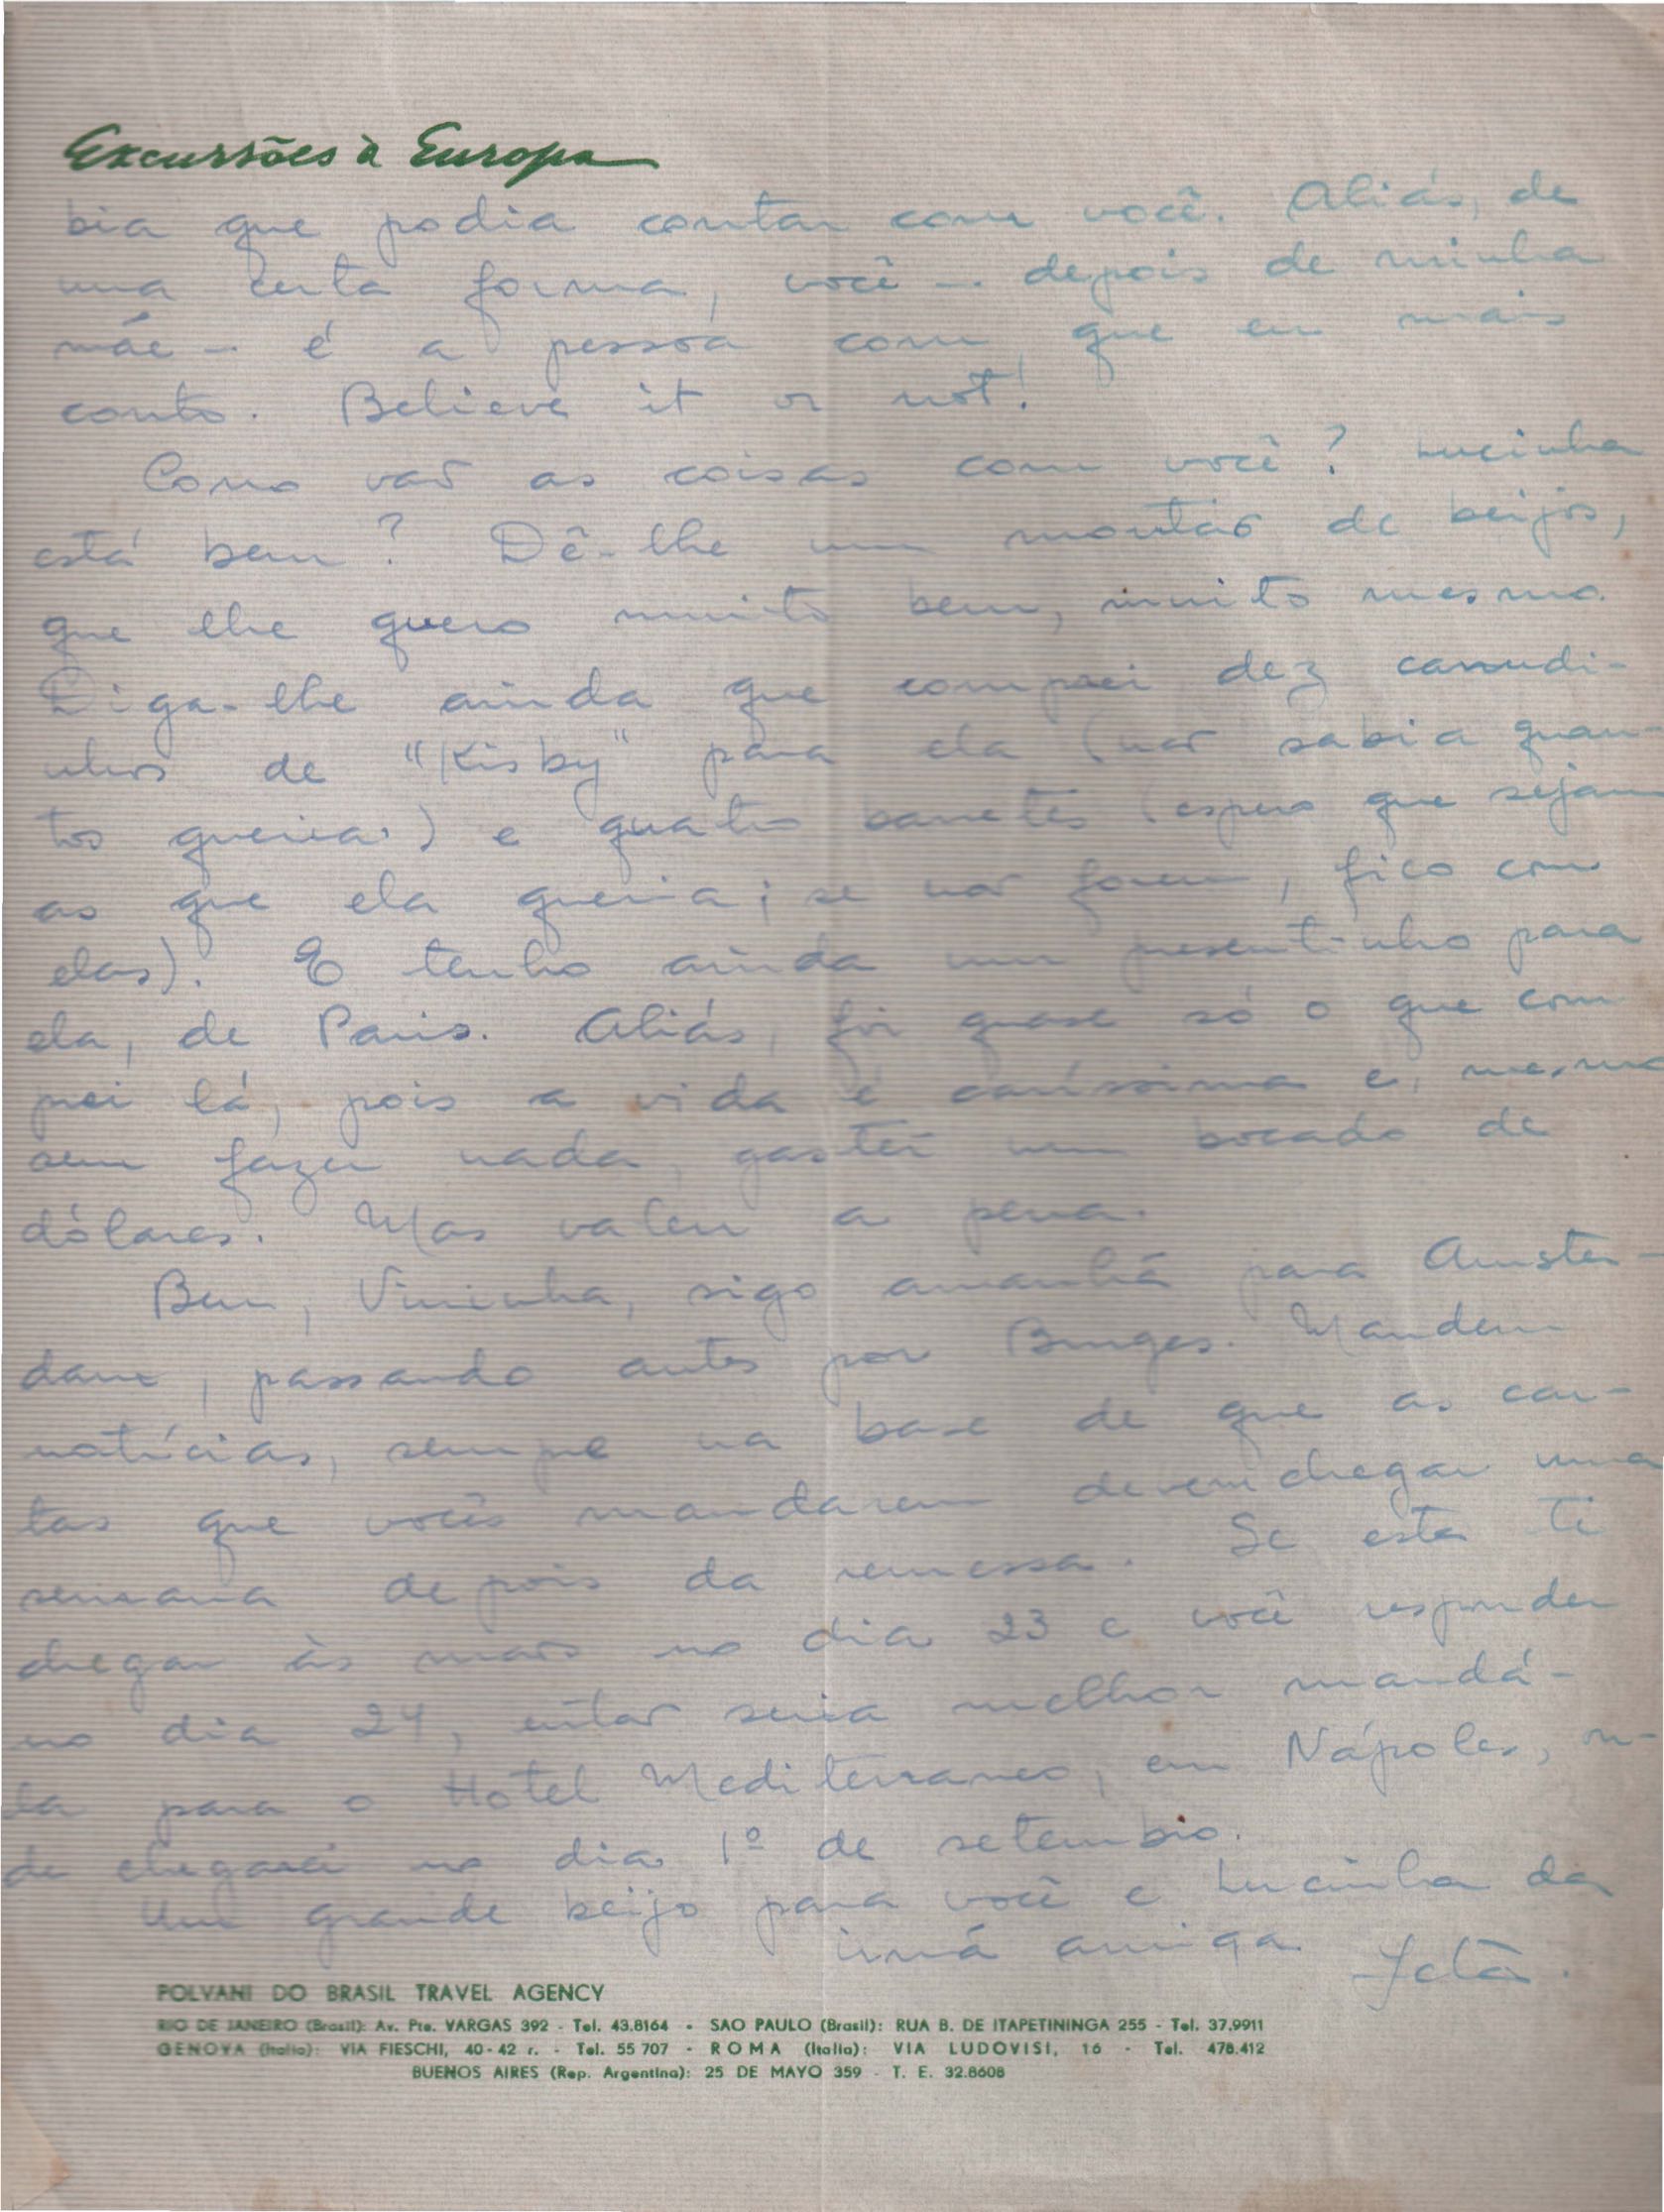 Excursões à Europa
bia que podia contar com você. Aliás, de
uma certa forma, você — depois de minha
mãe — é a pessoa com que eu mais
conto. Believe it or not!
Como vão as coisas com você? Lucinha
está bem? Dê-lhe um montão de beijos,
que lhe quero muito bem, muito mesmo.
Diga-lhe ainda que comprei dez canudi-
nhos de "Kisby" para ela (não sabia quan-
tos queria) e quatro canetas (espero que sejam
as que ela queria; se não forem, fico com
elas). E tenho ainda um presentinho para
ela, de Paris. Aliás, foi quase só o que com
prei lá, pois a vida é caríssima e, mesmo
sem fazer nada, gastei um bocado de
dólares. Mas valeu a pena.
Bem, Vivinha, sigo amanhã para Amster-
dam, passando antes por Bruges. Mandem
notícias, sempre na base de que as car-
tas que vocês mandarem devem chegar uma
semana depois da remessa. Se esta ti
chegar às mãos no dia 23 e você responder
no dia 24, então seria melhor mandá-
la para o Hotel Mediterraneo, em Nápoles, on-
de chegarei no dia 1º de setembro.
Um grande beijo para você e Lucinha da
irmã amiga
POLVANI DO BRASIL TRAVEL AGENCY
RIO DE JANEIRO (Brasil): Av. Pte. VARGAS 392 - Tel. 43.8164 - SAO PAULO (Brasil): RUA B. DE ITAPETININGA 255 - Tel. 37.9911
GENOVA (Italia): VIA FIESCHI, 40-42 r. - Tel. 55 707 - ROMA (Italia): VIA LUDOVISI, 16 - Tel. 478.412
BUENOS AIRES (Rep. Argentina): 25 DE MAYO 359 - T. E. 32.8608